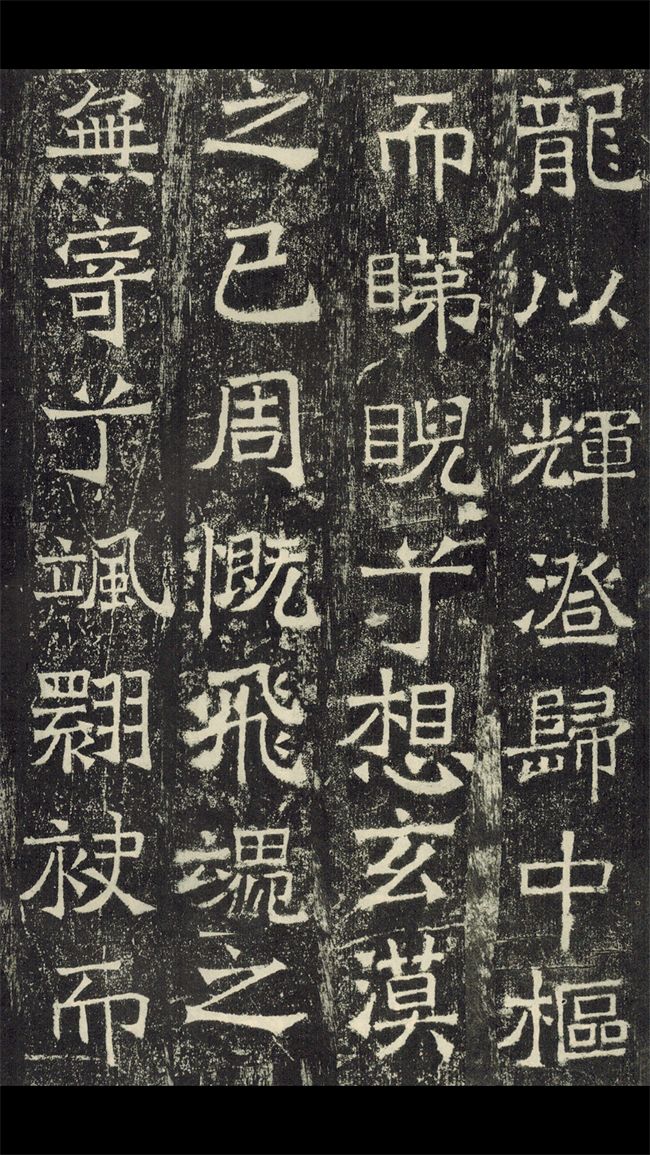 龍以輝澄歸中樞
而睇睨乎想玄漠
之已周慨飛之
無寄乎颯翾袂而